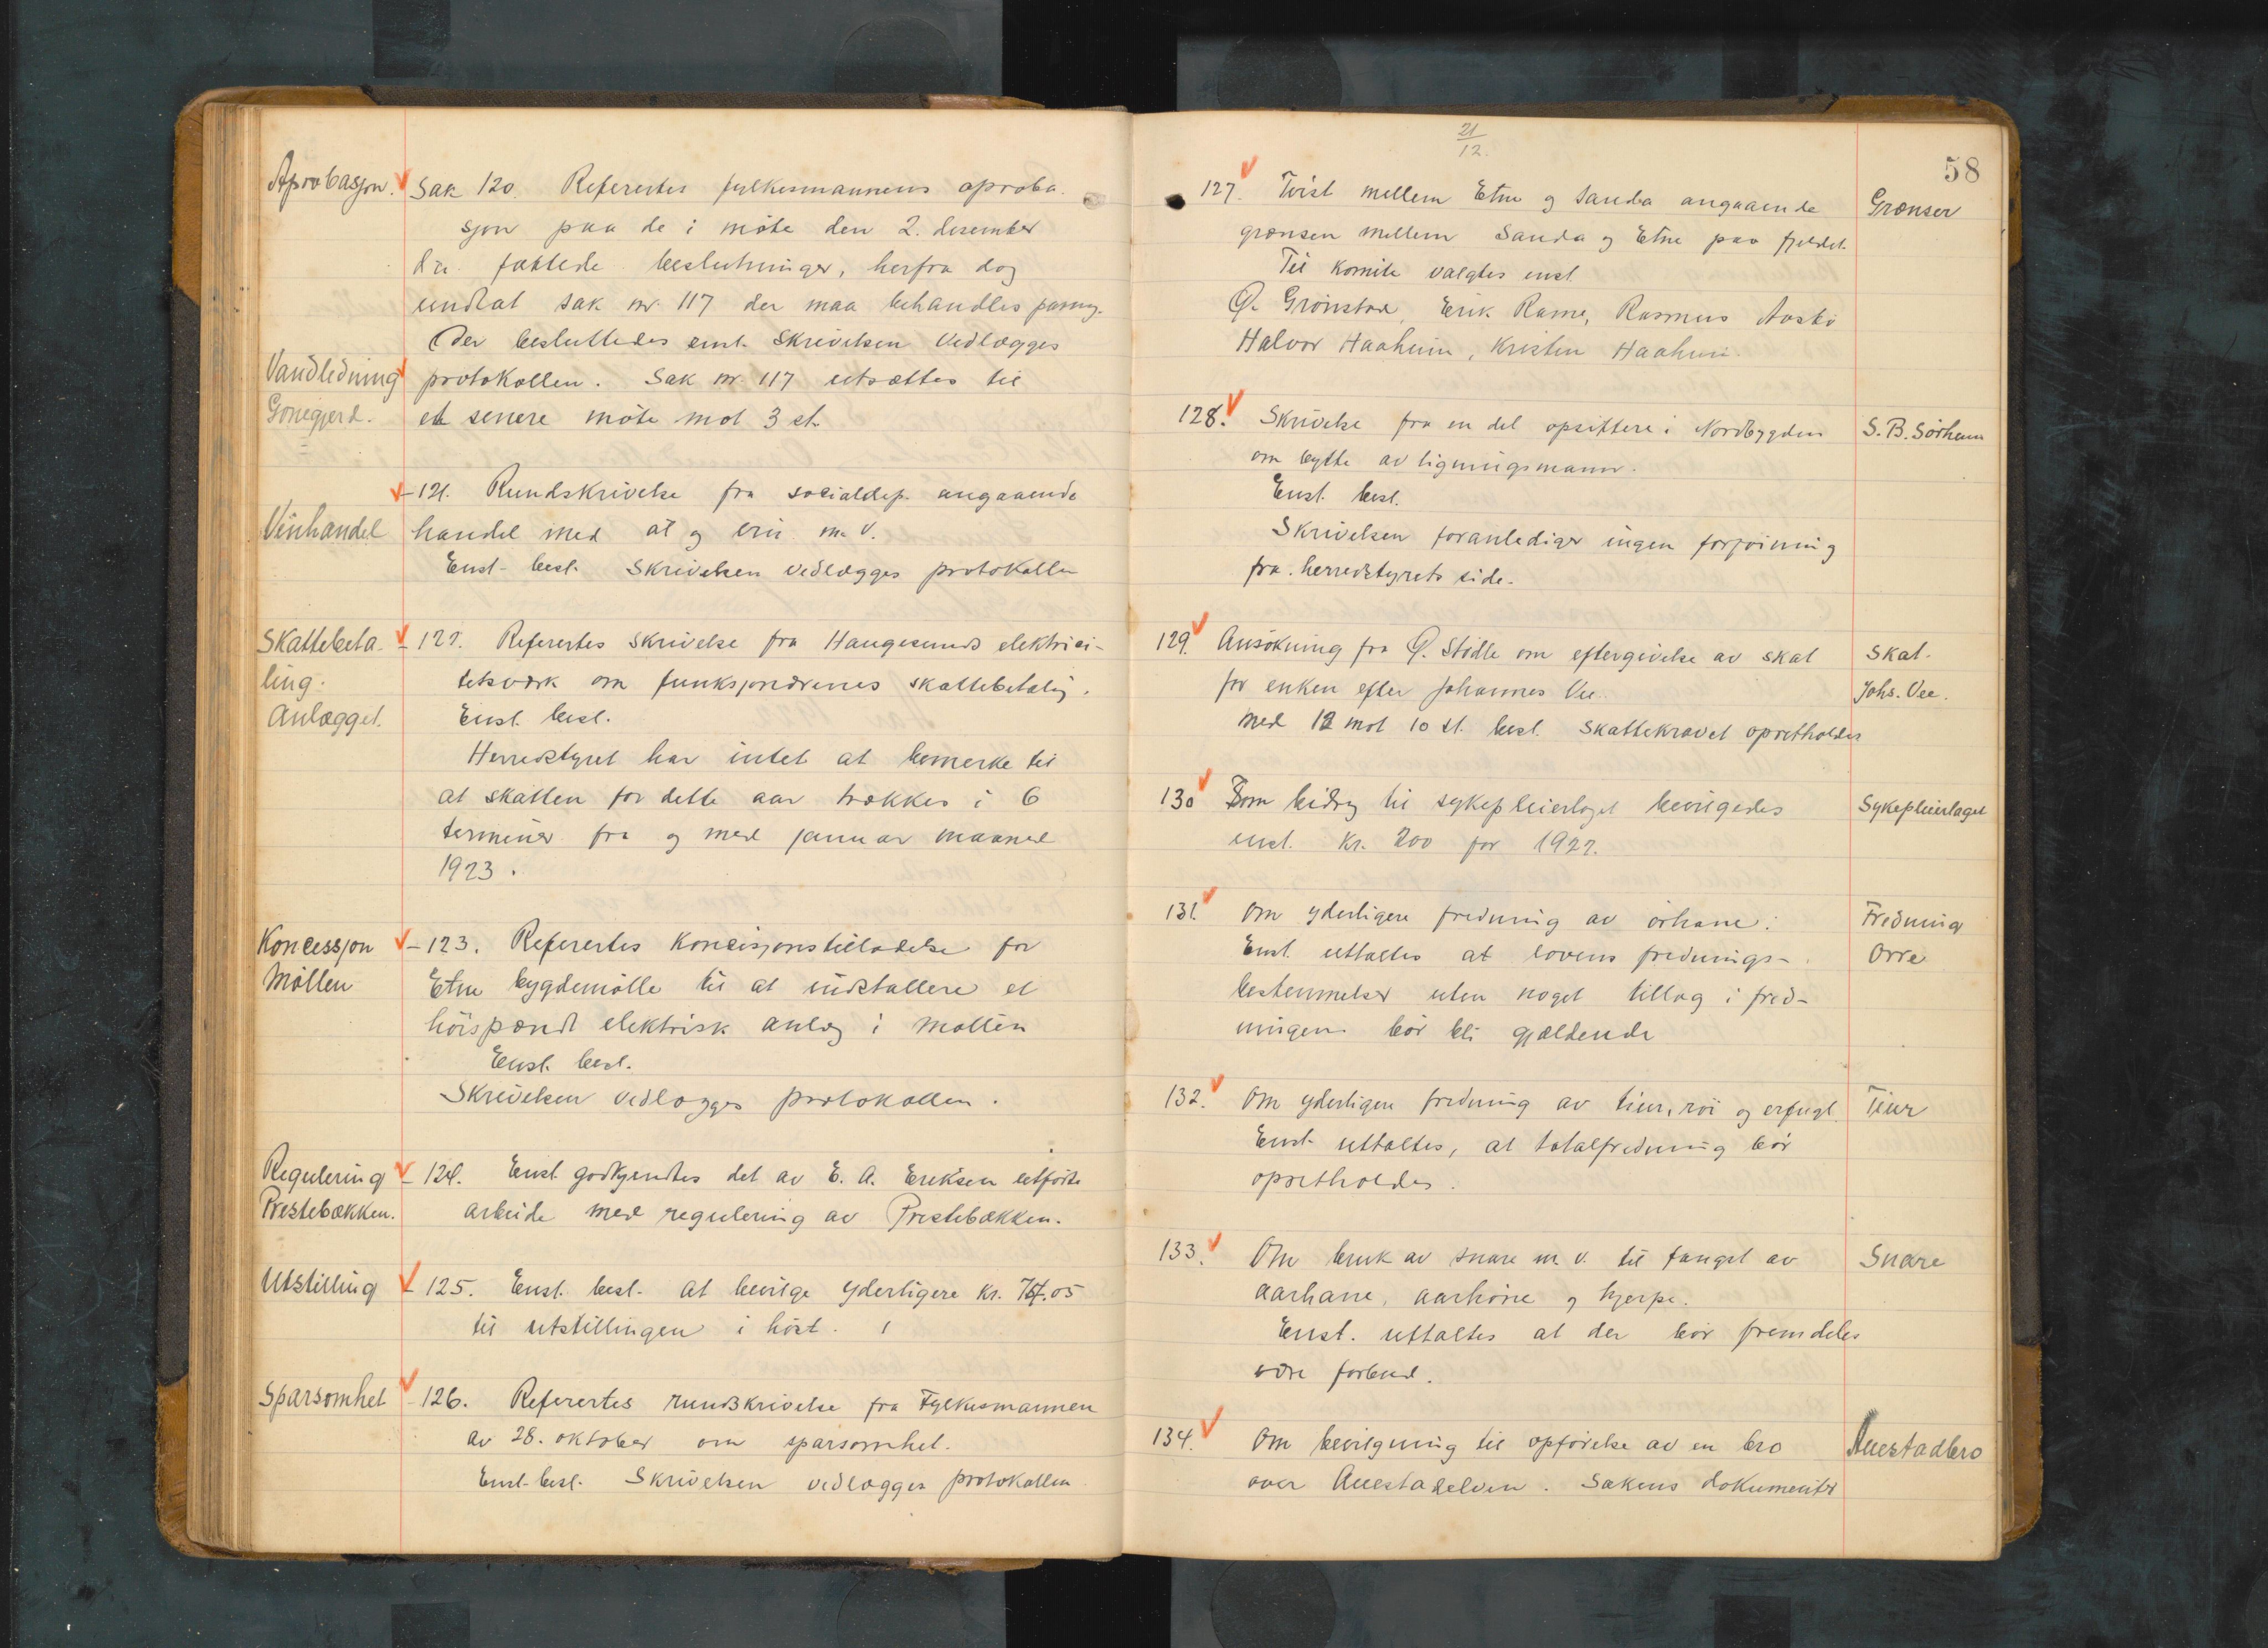 Aprobasjon. Sak 120. Referertes fylkesmannens aproba-
sjon paa de i møte den 2. desember
d.å. fattede beslutninger, herfra dog
undtat sak nr. 117 der maa behandles paany.
Der besluttedes enst. Skrivelsen vedlægges
Vandledning protokollen. Sak nr. 117 utsættes til
Gonegjerd. et senere møte mot 3 st.
- 121. Rundskrivelse fra socialdep. angaaende
Vinhandel handel med øl og vin m.v.
Enst. besl. Skrivelsen vedlægges protokollen
Skattebeta- - 122. Referertes skrivelse fra Haugesunds elektrici-
ling. tetsværk om funksjonærenes skattebetaling.
Anlægget. Enst. besl.
Herredstyret har intet at bemerke til
at skatten for dette aar trækkes i 6
terminer fra og med januar maaned
1923.
Koncessjon - 123. Referertes koncisjonstilladelse for
Møllen Etne bygdemølle til at indstallere et
høispændt elektrisk anlæg i møllen
Enst. besl.
Skrivelsen vedlægges protokollen.
Regulering - 124. Enst. godkjendtes det av E. A. Eriksen utførte
Prestebækken. arbeide med regulering av Prestebækken.
Utstilling - 125. Enst. besl. at bevilge yderligere kr. .05
til utstillingen i høst.
Sparsomhet - 126. Referertes rundskrivelse fra Fylkesmannen
av 28. oktober om sparsomhet.
Enst. besl. Skrivelsen vedlægges protokollen
21/12.
58
127. Tvist mellem Etne og Sauda angaaende Grænser
grænsen mellem Sauda og Etne paa fjeldet.
Til komite valgtes enst.
Ø. Grønstad, Erik Rame, Rasmus
Halvor Haaheim, Kristen Haaheim.
128. Skrivelse fra en del opsittere i Nordbygden S. B. Sørheim
om bytte av ligningsmann.
Enst. besl.
Skrivelsen foranlediger ingen forføining
fra herredstyrets side.
129. Ansøkning fra Ø. Stødle om eftergivelse av skat Skat.
for enken efter Johannes Vee. Johs. Vee.
Med 12 mot 10 st. besl. Skattekravet opretholdes
130 Som bidrag til sykepleierlaget bevilgedes Sykepleierlaget
enst. kr. 200 for 1922.
131. Om yderligere fredning av orhane: Fredning
Enst. uttaltes at lovens frednings- Orre
bestemmelser uten noget tillæg i fred-
ningen bør bli gjældende
132. Om yderligere fredning av tiur, røi og erfugl. Tiur
Enst. uttaltes, at totalfredning bør
opretholdes.
133. Om bruk av snare m.v. til fangst av Snare
aarhane, aarhøne og hjerpe.
Enst. uttaltes at der bør fremdeles
være forbud.
134. Om bevilgning til opførelse av en bro Auestadbro
over Auestadelven. Sakens dokumenter